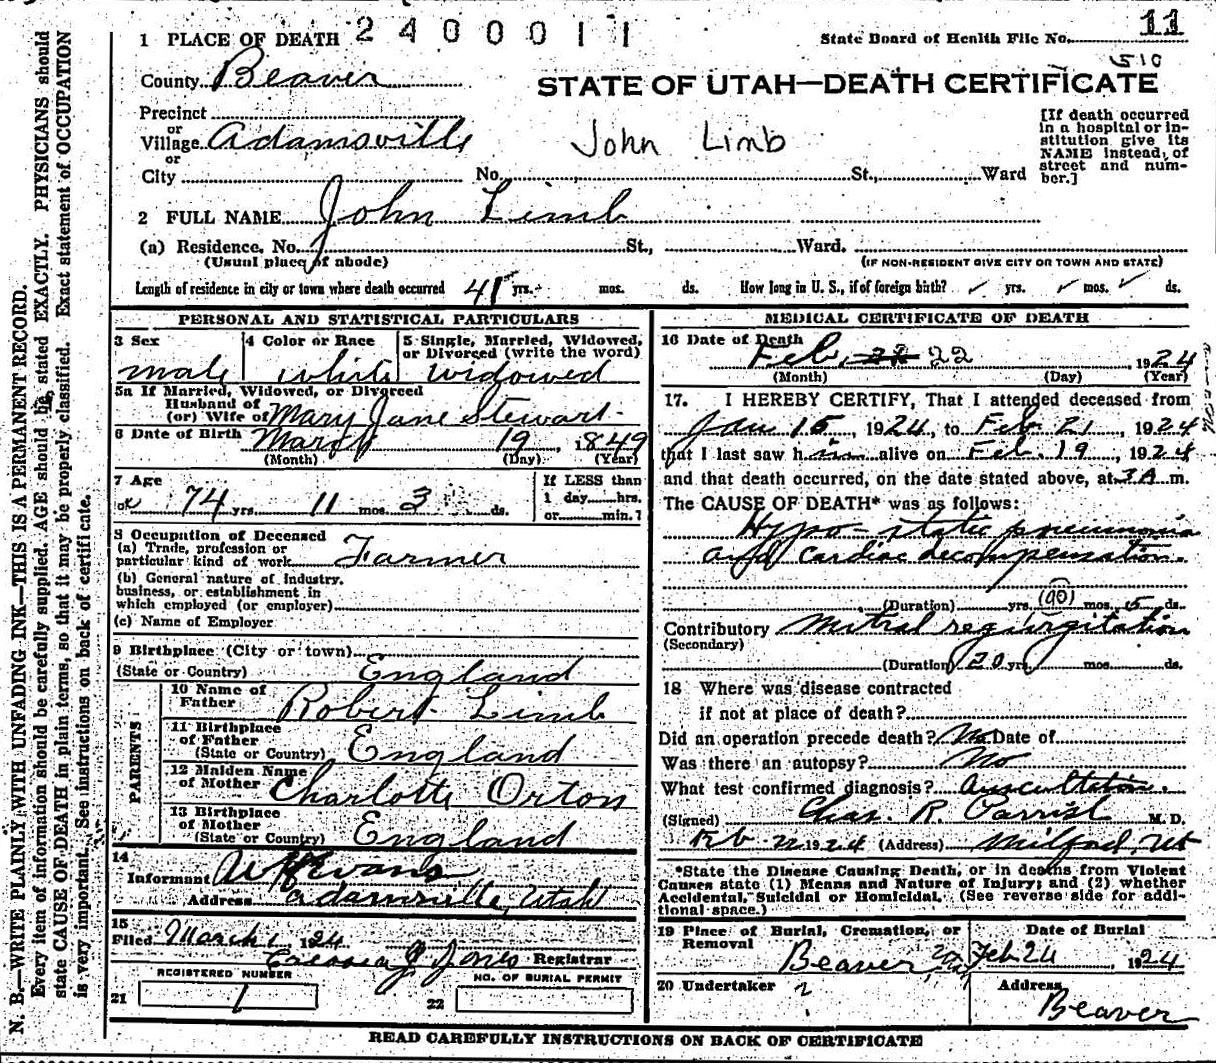 2400011
11
1 PLACE OF DEATH
State Board of Health File No.
510
County Beaver
STATE OF UTAH—DEATH CERTIFICATE
Precinct
or
Village Adamsville
John Limb
or
City No. St., Ward
[If death occurred
in a hospital or in-
stitution give its
NAME instead, of
street and num-
ber.]
2 FULL NAME John Limb
(a) Residence, No. St., Ward.
(Usual place of abode)
(IF NON-RESIDENT GIVE CITY OR TOWN AND STATE)
Length of residence in city or town where death occurred yrs. mos. ds. How long in U. S., if of foreign birth? yrs. mos. ds.
PERSONAL AND STATISTICAL PARTICULARS
3 Sex
male
4 Color or Race
white
5 Single, Married, Widowed,
or Divorced (write the word)
widowed
5a If Married, Widowed, or Divorced
Husband of
(or) Wife of Mary Jane Stewart
6 Date of Birth March 19, 1849
(Month) (Day) (Year)
7 Age
74 yrs. 11 mos. 3 ds.
If LESS than
1 day hrs.
or min.?
8 Occupation of Deceased
(a) Trade, profession or
particular kind of work Farmer
(b) General nature of industry.
business, or establishment in
which employed (or employer)
(c) Name of Employer
9 Birthplace (City or town)
(State or Country) England
PARENTS
10 Name of
Father Robert Limb
11 Birthplace
of Father
(State or Country) England
12 Maiden Name
of Mother Charlotte Orton
13 Birthplace
of Mother
(State or Country) England
14
Informant Evans
Address Adamsville, Utah
15
Filed March 1, 1924
J. Jones Registrar
REGISTERED NUMBER
21 1
NO. OF BURIAL PERMIT
22
MEDICAL CERTIFICATE OF DEATH
16 Date of Death
Feb. 22 22 1924
(Month) (Day) (Year)
17. I HEREBY CERTIFY, That I attended deceased from
Jan 15, 1924, to Feb 21, 1924
that I last saw him alive on Feb. 19, 1924
and that death occurred, on the date stated above, at 3 A m.
The CAUSE OF DEATH* was as follows:
Hypo-static pneumonia
and cardiac decompensation.
(Duration) yrs. (90) mos. 5 ds.
Contributory Mitral regurgitation
(Secondary)
(Duration) 20 yrs. mos. ds.
18 Where was disease contracted
if not at place of death?
Did an operation precede death? No Date of
Was there an autopsy? No
What test confirmed diagnosis? Auscultation.
(Signed) Chas. R. Parrish M. D.
Feb 22 1924 (Address) Milford, Ut
*State the Disease Causing Death, or in deaths from Violent
Causes state (1) Means and Nature of Injury; and (2) whether
Accidental, Suicidal or Homicidal. (See reverse side for addi-
tional space.)
19 Place of Burial, Cremation, or
Removal
Beaver
Date of Burial
Feb 24, 1924
20 Undertaker
?
Address
Beaver
READ CAREFULLY INSTRUCTIONS ON BACK OF CERTIFICATE
N. B.—WRITE PLAINLY WITH UNFADING INK—THIS IS A PERMANENT RECORD.
Every item of information should be carefully supplied. AGE should be stated EXACTLY. PHYSICIANS should
state CAUSE OF DEATH in plain terms, so that it may be properly classified. Exact statement of OCCUPATION
is very important. See instructions on back of certificate.